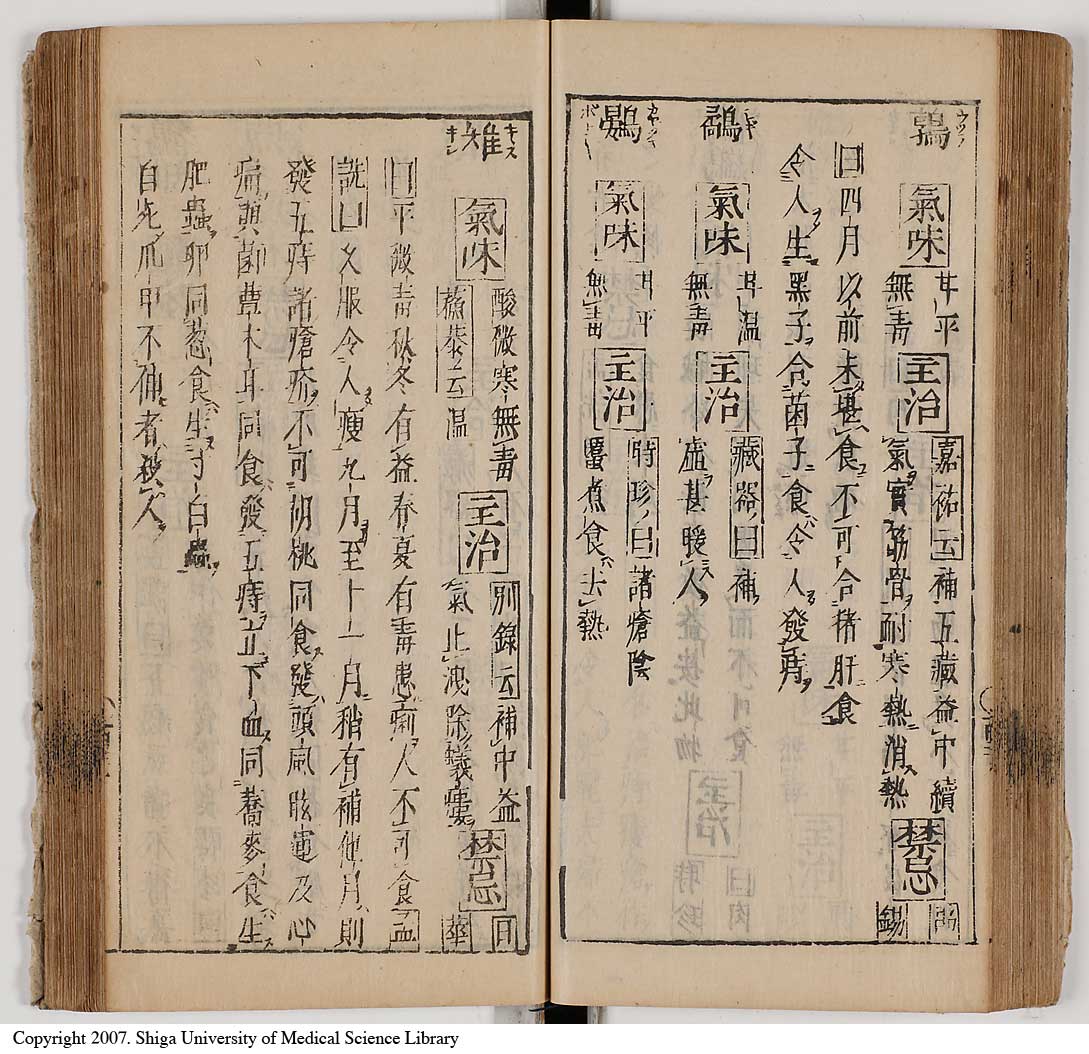 鶉 氣味 甘平無毒 主治 嘉祐云補五藏益中續氣實筋骨耐寒熱消熱 禁忌 禹錫
曰四月以前未堪食不可合猪肝食
令人生黑子合菌子食令人發痔
鷸 氣味 甘温無毒 主治 藏器曰補虚甚暖人
鷃 氣味 甘平無毒 主治 時珍曰諸瘡陰䘌煮食去熱
雉 キス キシ 氣味 酸微寒無毒 蕭恭云温 主治 別錄云補中益氣止洩除蟻瘻 禁忌 日華
曰平微毒秋冬有益春夏有毒患痢人不可食 孟
詵曰久服令人瘦九月至十一月稍有補他月則
發五痔諸瘡疥不可胡桃同食發頭風眩運及心
痛與菌蕈木耳同食發五痔立下血同蕎麥食生
肥蟲卵同葱食生寸白蟲
自死爪甲不伸者殺人
Copyright 2007. Shiga University of Medical Science Library